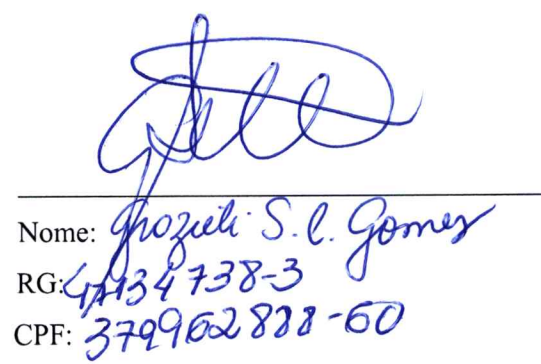 Nome: Grozieli S. C. Gomes
RG: 47134738-3
CPF: 379962888-60